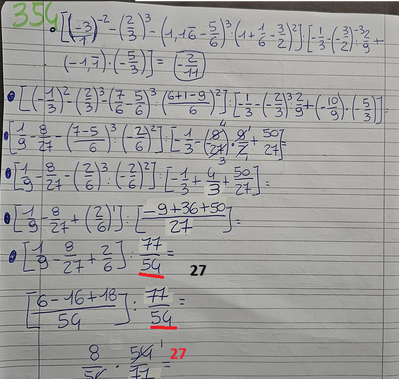 354
• [(-3/1)^-2 - (2/3)^3 - (-1,1\overline{6} - 5/6)^3 : (1 + 1/6 - 3/2)^2] : [-1/3 - (-3/2)^-3 · 2/9 +
(-1,\overline{1}) · (-5/3)] = (-2/11)
• [(-1/3)^2 - (2/3)^3 - (7/6 - 5/6)^3 : (6+1-9/6)^2] : [-1/3 - (-2/3)^3 · 2/9 + (-10/9) · (-5/3)] =
• [1/9 - 8/27 - (7-5/6)^3 : (2/6)^2] : [-1/3 - (8/27) · 9/2 + 50/27] =
4 1
3 1
• [1/9 - 8/27 - (2/6)^3 : (-2/6)^2] : [-1/3 + 4/3 + 50/27] =
• [1/9 - 8/27 + (2/6)^1] : [-9+36+50/27] =
• [1/9 - 8/27 + 2/6] : 77/54 =
27
[6-16+18/54] : 77/54 =
8/54 · 54/77 =
1
27